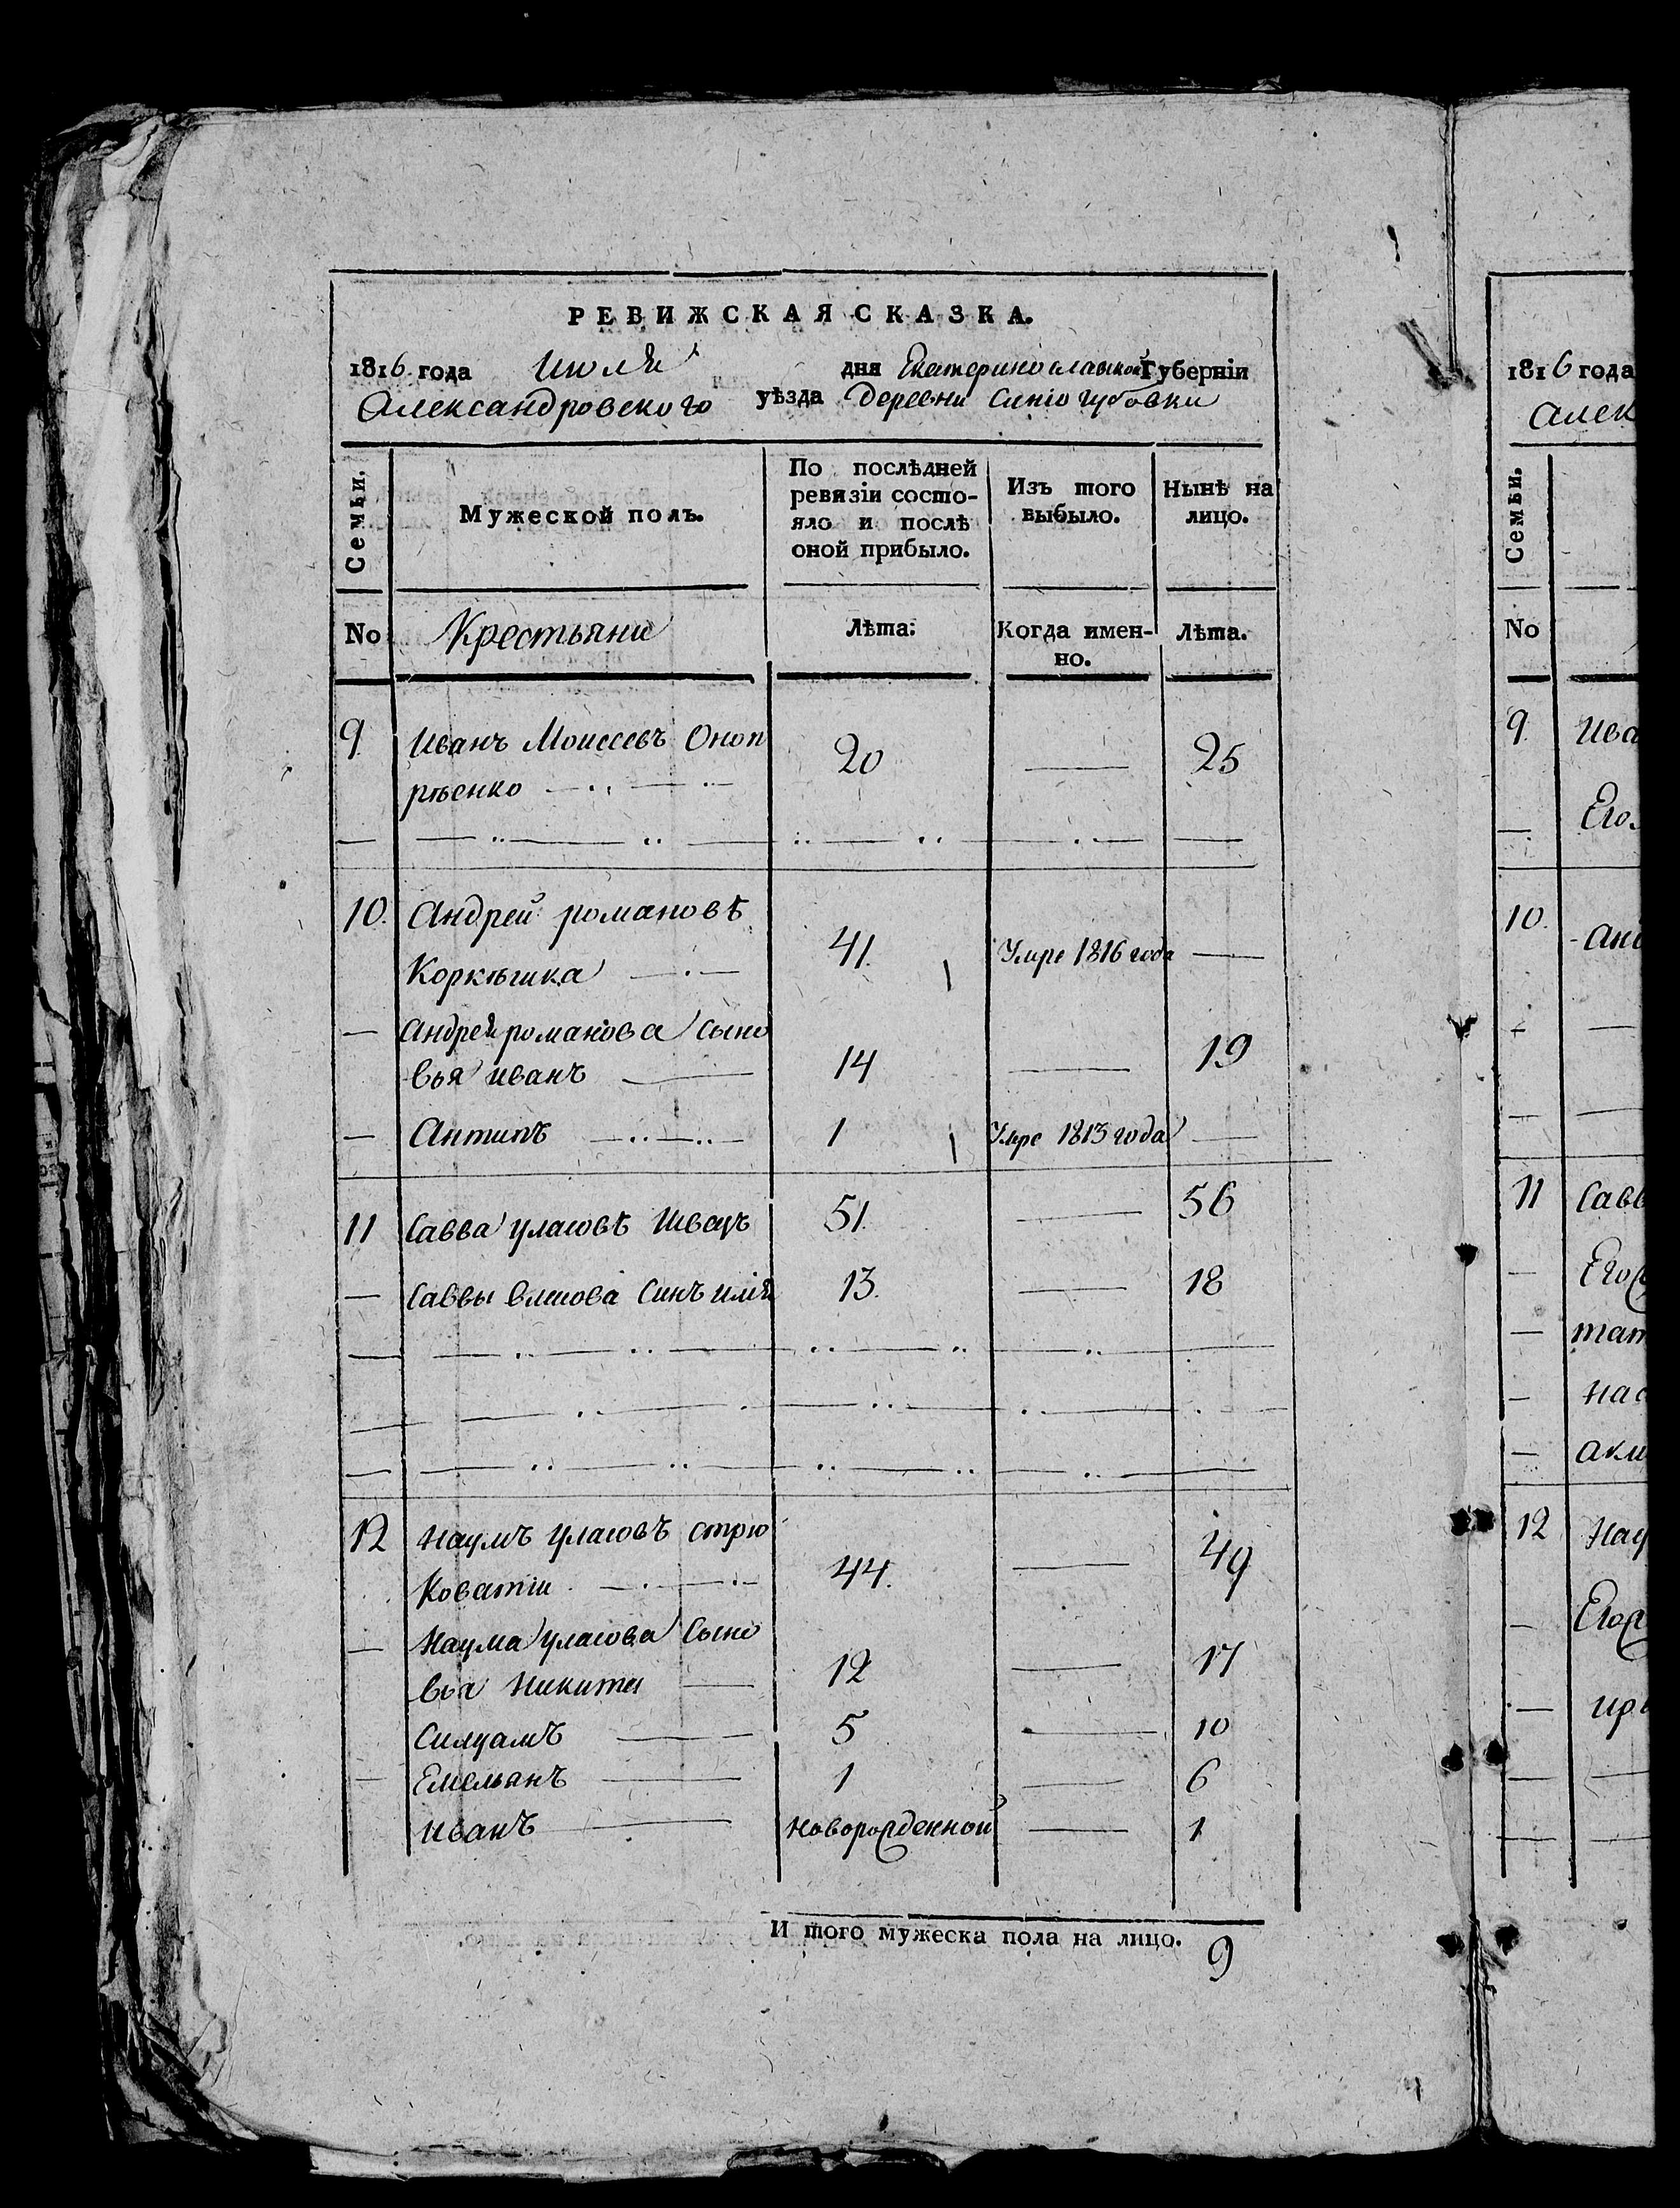 РЕВИЖСКАЯ СКАЗКА.
1816 года Июля дня Екатеринославской Губерніи
Александровского уѣзда деревни Синіогубовки
Семьи.
Мужеской полъ.
По послѣдней
ревизіи состо-
яло и послѣ
оной прибыло.
Изъ того
выбыло.
Нынѣ на
лицо.
No
Крестьяни
Лѣта:
Когда имен-
но.
Лѣта.
9 Иванъ Моисеевъ Оноп
рѣенко 20 — 25
10. Андрей романовъ
41. Умре 1816 года —
— Андрея романова сыно
вья иванъ 14 — 19
— Антипъ 1 Умре 1813 года —
11 Савва уласовъ Швецъ 51. — 56
— Саввы власова Синъ илія 13. — 18
12 Наумъ уласовъ стрю
44. — 49
— Наума уласова Сыно
вья Никита 12 — 17
Силуамъ 5 — 10
— Емельянъ 1 — 6
иванъ новорожденной — 1
И того мужеска пола на лицо. 9
1816 года
Алек
Семьи.
No
9. Ива
Его
10. Анд
11 Савв
— Егож
— тат
— нас
— аки
12 Нау
— Егож
— ири